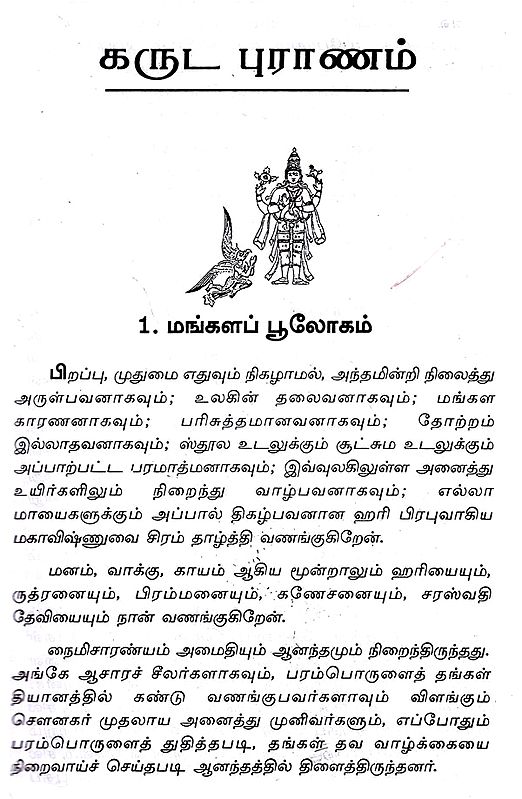 கருட புராணம்
1. மங்களப் பூலோகம்
பிறப்பு, முதுமை எதுவும் நிகழாமல், அந்தமின்றி நிலைத்து
அருள்பவனாகவும்; உலகின் தலைவனாகவும்; மங்கள
காரணனாகவும்; பரிசுத்தமானவனாகவும்; தோற்றம்
இல்லாதவனாகவும்; ஸ்தூல உடலுக்கும் சூட்சும உடலுக்கும்
அப்பாற்பட்ட பரமாத்மனாகவும்; இவ்வுலகிலுள்ள அனைத்து
உயிர்களிலும் நிறைந்து வாழ்பவனாகவும்; எல்லா
மாயைகளுக்கும் அப்பால் திகழ்பவனான ஹரி பிரபுவாகிய
மகாவிஷ்ணுவை சிரம் தாழ்த்தி வணங்குகிறேன்.
மனம், வாக்கு, காயம் ஆகிய மூன்றாலும் ஹரியையும்,
ருத்ரனையும், பிரம்மனையும், கணேசனையும், சரஸ்வதி
தேவியையும் நான் வணங்குகிறேன்.
நைமிசாரண்யம் அமைதியும் ஆனந்தமும் நிறைந்திருந்தது.
அங்கே ஆசாரச் சீலர்களாகவும், பரம்பொருளைத் தங்கள்
தியானத்தில் கண்டு வணங்குபவர்களாவும் விளங்கும்
சௌனகர் முதலாய அனைத்து முனிவர்களும், எப்போதும்
பரம்பொருளைத் துதித்தபடி, தங்கள் தவ வாழ்க்கையை
நிறைவாய்ச் செய்தபடி ஆனந்தத்தில் திளைத்திருந்தனர்.